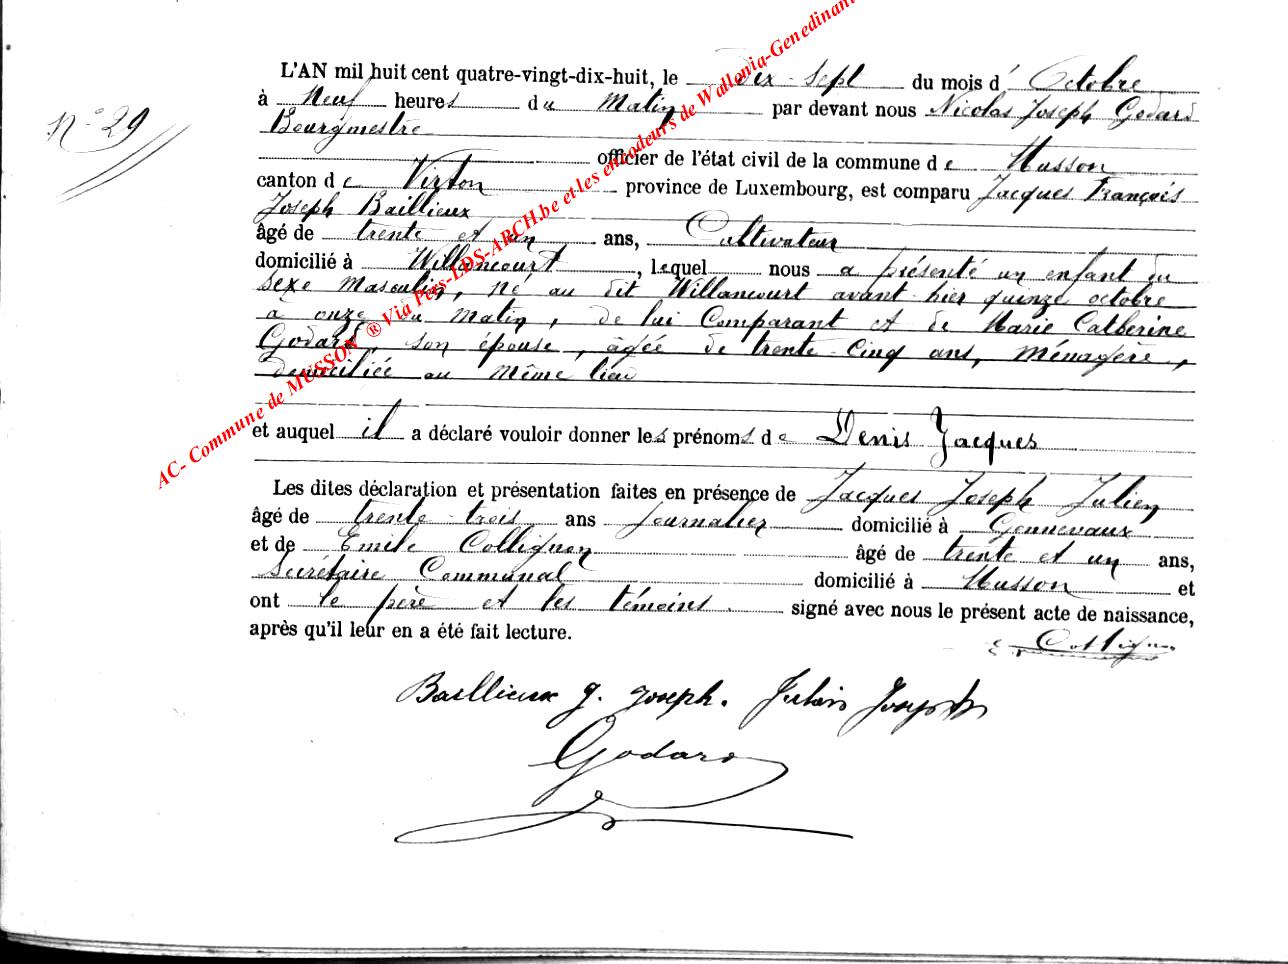 L'AN mil huit cent quatre-vingt-dix-huit, le Dix-Sept du mois d' Octobre
à Neuf heures du Matin par devant nous Nicolas Joseph Godard
N° 29
Bourgmestre
officier de l'état civil de la commune de Musson
canton de Virton province de Luxembourg, est comparu Jacques François
Joseph Baillieux
âgé de trente et un ans, Cultivateur
domicilié à Willancourt, lequel nous a présenté un enfant du
Sexe Masculin, né au dit Willancourt avant hier quinze octobre
à onze du Matin, de lui Comparant et de Marie Catherine
Godard, son épouse, âgée de trente-cinq ans, Ménagère,
domiciliée au même lieu
et auquel il a déclaré vouloir donner les prénoms de Denis Jacques
Les dites déclaration et présentation faites en présence de Jacques Joseph Julien
âgé de trente-trois ans journalier domicilié à Gennevaux
et de Emile Collignon âgé de trente et un ans,
Secrétaire Communal domicilié à Musson et
ont le père et les témoins. signé avec nous le présent acte de naissance,
après qu'il leur en a été fait lecture.
E. Collignon
Baillieux J. Joseph. Julien Joseph
Godard
AC- Commune de MUSSON ® Via Pers-LDS-ARCH.be et les encodeurs de Wallonia-Genedinant